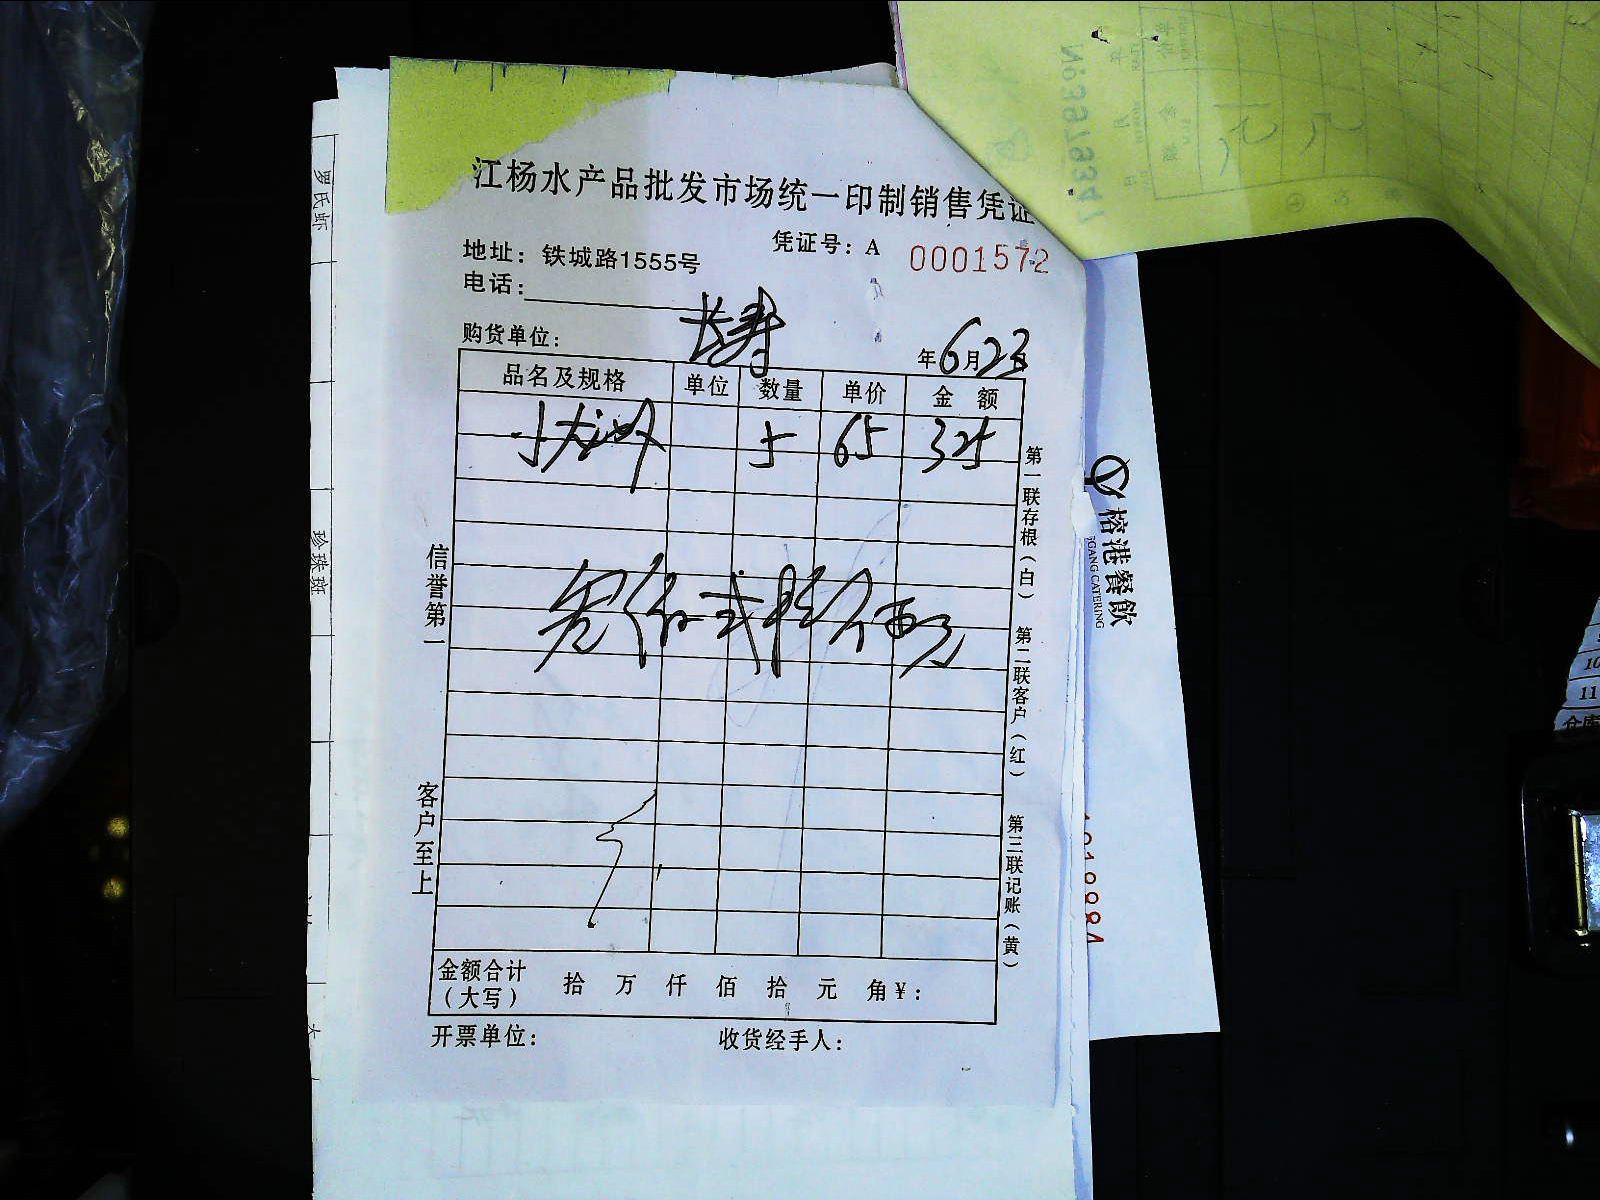 江杨水产品批发市场统一印制销售凭证
凭证号：A 0001572
地址：铁城路1555号
电话：
购货单位： 长寿
年6月23日
品名及规格 单位 数量 单价 金额
小龙虾 5 65 325
叁佰贰拾伍元
金额合计（大写） 拾 万 仟 佰 拾 元 角 ¥：
开票单位： 收货经手人：
信誉第一
客户至上
第一联存根（白）
第二联客户（红）
第三联记账（黄）
罗氏虾
珍珠斑
榕港餐飲
GANG CATERING
№3979347
10
11
仓库